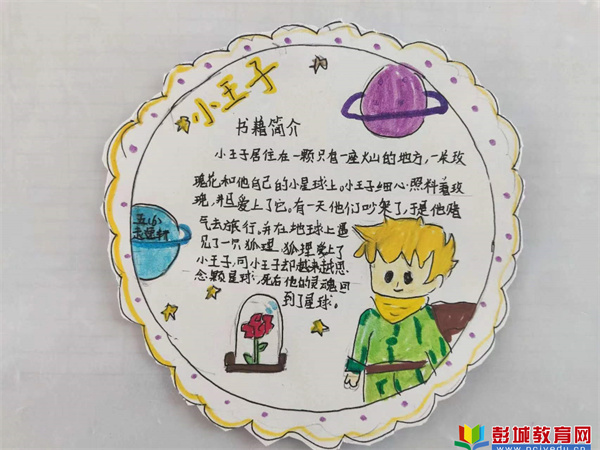 小王子
书籍简介
小王子居住在一颗只有一座火山的地方,一朵玫
瑰花和他自己的小星球上。小王子细心照料着玫
瑰,并且爱上了它。有一天他们吵架了,于是他赌
气去旅行。并在地球上遇
见了一只狐狸。狐狸爱上了
小王子,可小王子却越来越思
念颗星球,死后他的灵魂回
到了星球。
五(6)
彭城教育网
www.pcjyw.edu.cn